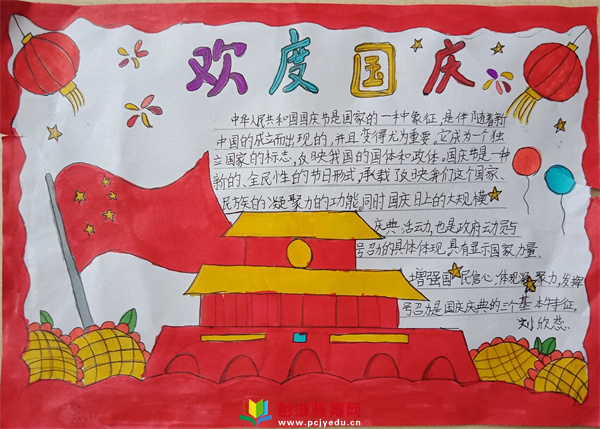 欢度国庆
中华人民共和国国庆节是国家的一种象征,是伴随着新
中国的成立而出现的,并且变得尤为重要。它成为一个独
立国家的标志,反映我国的国体和政体。国庆节是一种
新的、全民性的节日形式,承载了反映我们这个国家、
民族的凝聚力的功能,同时国庆日上的大规模
庆典活动,也是政府动员与
号召的具体体现,具有显示国家力量、
增强国民信心,体现凝聚力,发挥
号召力是国庆庆典的三个基本特征。
刘欣蕊
www.pcjyedu.cn